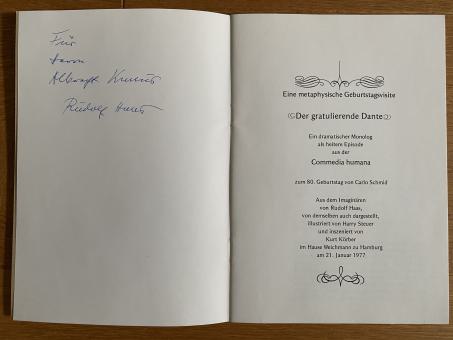 Für
Herrn
Albrecht
Rudolf Haas
Eine metaphysische Geburtstagsvisite
Der gratulierende Dante
Ein dramatischer Monolog
als heitere Episode
aus der
Commedia humana
zum 80. Geburtstag von Carlo Schmid
Aus dem Imaginären
von Rudolf Haas,
von demselben auch dargestellt,
illustriert von Harry Steuer
und inszeniert von
Kurt Körber
im Hause Weichmann zu Hamburg
am 21. Januar 1977